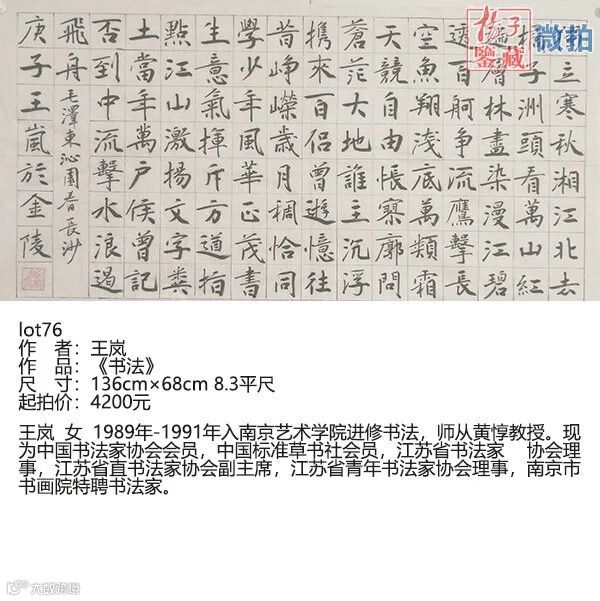 立寒秋湘江北去
子洲頭看萬山紅
層林盡染漫江碧
透百舸争流鷹擊長
空魚翔淺底萬類霜
天競自由悵寥廓問
蒼茫大地誰主沉浮
携來百侣曾遊憶往
昔崢嶸歲月稠恰同
學少年風華正茂書
生意氣揮斥方遒指
點江山激揚文字糞
土當年萬户侯曾記
否到中流擊水浪遏
飛舟
毛澤東沁園春長沙
庚子王嵐於金陵
子鉴藏
微拍
lot76
作 者：王岚
作 品：《书法》
尺 寸：136cm×68cm 8.3平尺
起拍价：4200元
王岚 女 1989年-1991年入南京艺术学院进修书法，师从黄惇教授。现
为中国书法家协会会员，中国标准草书社会员，江苏省书法家 协会理
事，江苏省直书法家协会副主席，江苏省青年书法家协会理事，南京市
书画院特聘书法家。
大威跨境